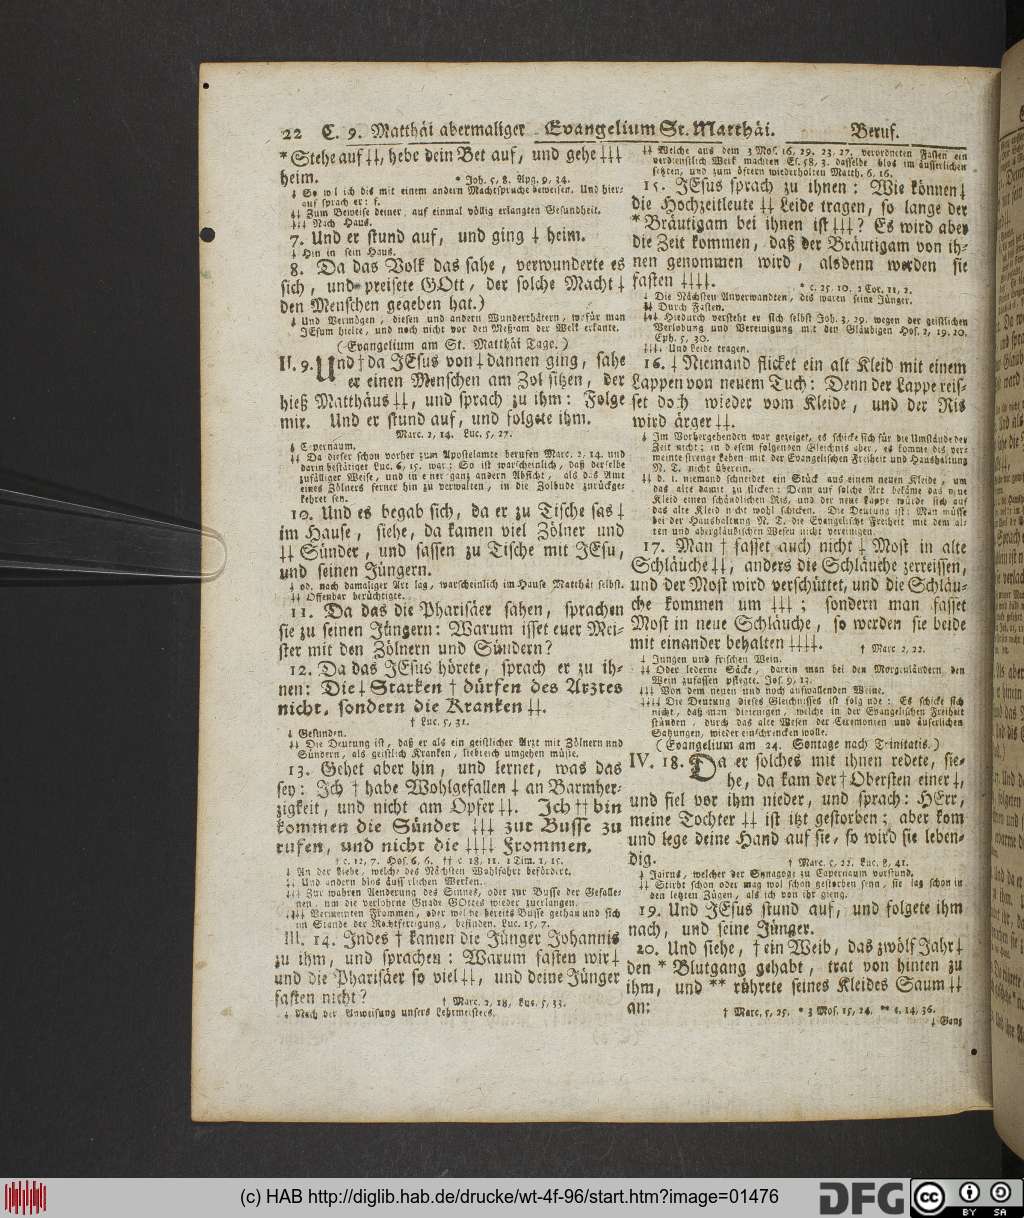 22 C. 9. Matthäi abermaliger Evangelium St. Matthäi. Beruf.
* Stehe auf ‡‡, hebe dein Bet auf, und gehe ‡‡‡
heim. * Joh. 5, 8. Apg. 9, 34.
‡ So wil ich dis mit einem andern Machtspruche beweisen. Und hier-
auf sprach er: f.
‡‡ Zum Beweise deiner, auf einmal völlig erlangten Gesundheit.
‡‡‡ Nach Haus.
7. Und er stund auf, und ging ‡ heim.
‡ Hin in sein Haus.
8. Da das Volk das sahe, verwunderte es
sich, und preisete GOtt, der solche Macht ‡
den Menschen gegeben hat.)
‡ Und Vermögen, diesen und andern Wunderthätern, wofür man
JEsum hielte, und noch nicht vor den Meßiam der Welt erkante.
(Evangelium am St. Matthäi Tage.)
II. 9. Und † da JEsus von ‡ dannen ging, sahe
er einen Menschen am Zol sitzen, der
hieß Matthäus ‡‡, und sprach zu ihm: Folge
mir. Und er stund auf, und folgete ihm.
Marc. 2, 14. Luc. 5, 27.
‡ Capernaum.
‡‡ Da dieser schon vorher zum Apostelamte berufen Marc. 2, 14. und
darin bestätiget Luc. 6, 15. war; So ist warscheinlich, daß derselbe
zufälliger Weise, und in einer ganz andern Absicht, als das Amt
eines Zölners ferner hin zu verwalten, in die Zolbude zurückge-
kehret sey.
10. Und es begab sich, da er zu Tische sas ‡
im Hause, siehe, da kamen viel Zölner und
‡‡ Sünder, und sassen zu Tische mit JEsu,
und seinen Jüngern.
‡ od. nach damaliger Art lag, warscheinlich im Hause Matthäi selbst.
‡‡ Offenbar berüchtigte.
11. Da das die Pharisäer sahen, sprachen
sie zu seinen Jüngern: Warum isset euer Mei-
ster mit den Zölnern und Sündern?
12. Da das JEsus hörete, sprach er zu ih-
nen: Die ‡ Starken † dürfen des Arztes
nicht, sondern die Kranken ‡‡.
† Luc. 5, 31.
‡ Gesunden.
‡‡ Die Deutung ist, daß er als ein geistlicher Arzt mit Zölnern und
Sündern, als geistlich Kranken, liebreich umgehen müsse.
13. Gehet aber hin, und lernet, was das
sey: Ich † habe Wohlgefallen ‡ an Barmher-
zigkeit, und nicht am Opfer ‡‡. Ich †† bin
kommen die Sünder ‡‡‡ zur Busse zu
rufen, und nicht die ‡‡‡‡ Frommen.
† c. 12, 7. Hos. 6, 6. †† c. 18, 11. 1 Tim. 1, 15.
‡ An der Liebe, welche des Nächsten Wohlfahrt befördert.
‡‡ Und andern blos äusserlichen Werken.
‡‡‡ Zur wahren Aenderung des Sinnes, oder zur Busse der Gefalle-
nen, um die verlohrne Gnade GOttes wieder zuerlangen.
‡‡‡‡ Vermeinten Frommen, oder welche bereits Busse gethan und sich
im Stande der Rechtfertigung, befinden. Luc. 15, 7.
III. 14. Indes † kamen die Jünger Johannis
zu ihm, und sprachen: Warum fasten wir ‡
und die Pharisäer so viel ‡‡, und deine Jünger
fasten nicht? † Marc. 2, 18. Luc. 5, 33.
‡ Nach der Anweisung unsers Lehrmeisters.
‡‡ Welche aus dem 3 Mos. 16, 29. 23, 27. verordneten Fasten ein
verdienstlich Werk machten Es. 58, 3. dasselbe blos im äusserlichen
setzten, und zum öftern wiederholten Matth. 6, 16.
15. JEsus sprach zu ihnen: Wie können ‡
die Hochzeitleute ‡‡ Leide tragen, so lange der
* Bräutigam bei ihnen ist ‡‡‡? Es wird aber
die Zeit kommen, daß der Bräutigam von ih-
nen genommen wird, alsdenn werden sie
fasten ‡‡‡‡. * c. 25, 10. 2 Cor. 11, 2.
‡ Die Nächsten Anverwandten, dis waren seine Jünger.
‡‡ Durch Fasten.
‡‡‡ Hiedurch versteht er sich selbst Joh. 3, 29. wegen der geistlichen
Verlobung und Vereinigung mit den Gläubigen Hos. 2, 19. 20.
Eph. 5, 30.
‡‡‡‡ Und Leide tragen.
16. ‡ Niemand flicket ein alt Kleid mit einem
Lappen von neuem Tuch: Denn der Lappe reis-
set doch wieder vom Kleide, und der Ris
wird ärger ‡‡.
‡ Im Vorhergehenden war gezeiget, es schicke sich für die Umstände der
Zeit nicht; in diesem folgenden Gleichnis aber, es komme dis ver-
meinte strenge Leben mit der Evangelischen Freiheit und Haushaltung
N. T. nicht überein.
‡‡ d. i. niemand schneidet ein Stück aus einem neuen Kleide, um
das alte damit zu flicken: Denn auf solche Art bekäme das neue
Kleid einen schändlichen Ris, und der neue Lappe würde sich auf
das alte Kleid nicht wohl schicken. Die Deutung ist: Man müsse
bei der Haushaltung N. T. die Evangelische Freiheit mit dem al-
ten und abergläubischen Wesen nicht vereinigen.
17. Man † fasset auch nicht ‡ Most in alte
Schläuche ‡‡, anders die Schläuche zerreissen,
und der Most wird verschüttet, und die Schläu-
che kommen um ‡‡‡; sondern man fasset
Most in neue Schläuche, so werden sie beide
mit einander behalten ‡‡‡‡. † Marc. 2, 22.
‡ Jungen und frischen Wein.
‡‡ Oder lederne Säcke, darein man bei den Morgenländern den
Wein zufassen pflegte. Jos. 9, 13.
‡‡‡ Von dem neuen und noch aufwallenden Weine.
‡‡‡‡ Die Deutung dieses Gleichnisses ist folgende: Es schicke sich
nicht, daß man diejenigen, welche in der Evangelischen Freiheit
stünden, durch das alte Wesen der Ceremonien und äuserlichen
Satzungen, wieder einschrencken wolle.
(Evangelium am 24. Sontage nach Trinitatis.)
IV. 18. Da er solches mit ihnen redete, sie-
he, da kam der † Obersten einer ‡,
und fiel vor ihm nieder, und sprach: HErr,
meine Tochter ‡‡ ist itzt gestorben; aber kom
und lege deine Hand auf sie, so wird sie leben-
dig. † Marc. 5, 22. Luc. 8, 41.
‡ Jairus, welcher der Synagoge zu Capernaum vorstund.
‡‡ Stirbt schon oder mag wol schon gestorben seyn, sie lag schon in
den letzten Zügen, als ich von ihr gieng.
19. Und JEsus stund auf, und folgete ihm
nach, und seine Jünger.
20. Und siehe, † ein Weib, das zwölf Jahr ‡
den * Blutgang gehabt, trat von hinten zu
ihm, und ** rührete seines Kleides Saum ‡‡
an: † Marc. 5, 25. * 3 Mos. 15, 24. ** c. 14, 36.
‡ Ganz
(c) HAB http://diglib.hab.de/drucke/wt-4f-96/start.htm?image=01476
DFG
cc
BY SA